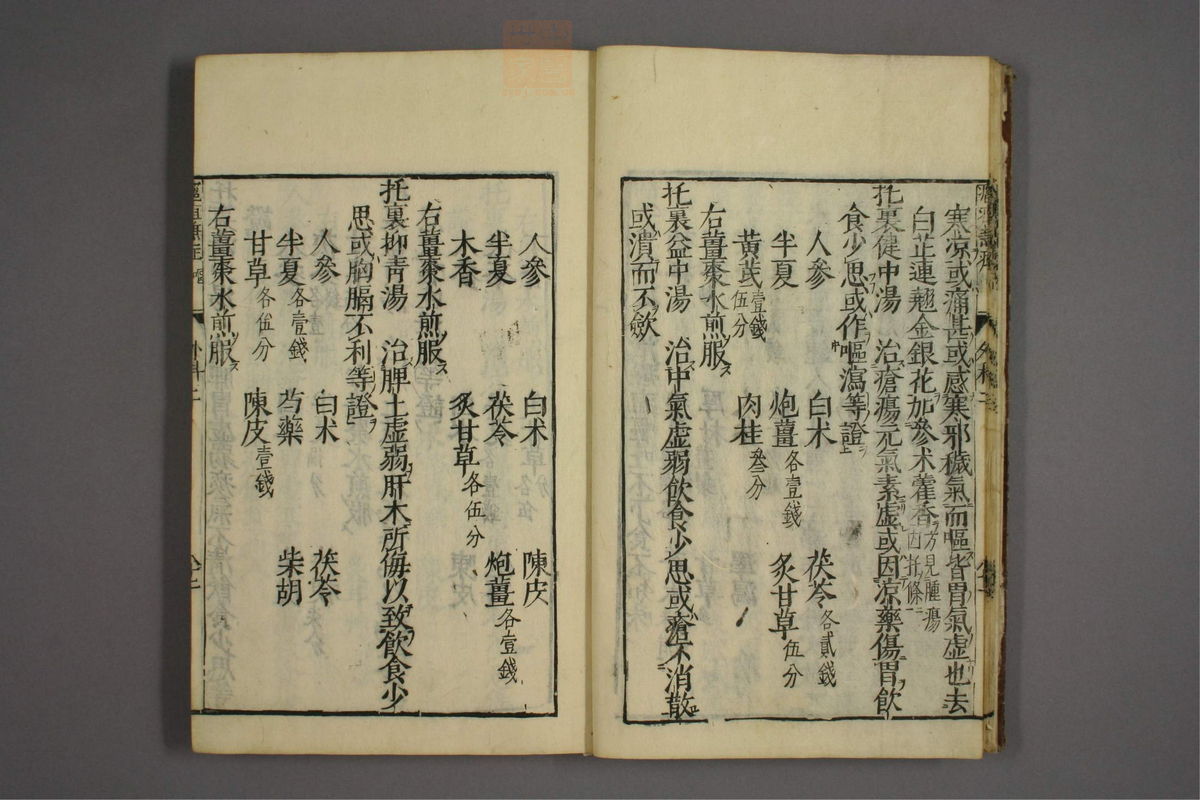 寒凉或痛甚或感寒邪穢氣而嘔皆胃氣虛也去
白芷連翹金銀花加參术藿香方見腫瘍
托裏健中湯 治瘡瘍元氣素虛或因凉藥傷胃飲
食少思或作嘔瀉等證
人參 白术 茯苓各貳錢
半夏 炮薑各壹錢 炙甘草伍分
黃芪壹錢伍分 肉桂叄分
右薑棗水煎服
托裏益中湯 治中氣虛弱飲食少思或瘡不消散
或潰而不斂
人參 白术 陳皮
半夏 茯苓 炮薑各壹錢
木香 炙甘草各伍分
右薑棗水煎服
托裏抑青湯 治脾土虛弱肝木所侮以致飲食少
思或胸膈不利等證
人參 白术 茯苓
半夏各壹錢 芍藥 柴胡
甘草各伍分 陳皮壹錢
右薑棗水煎服